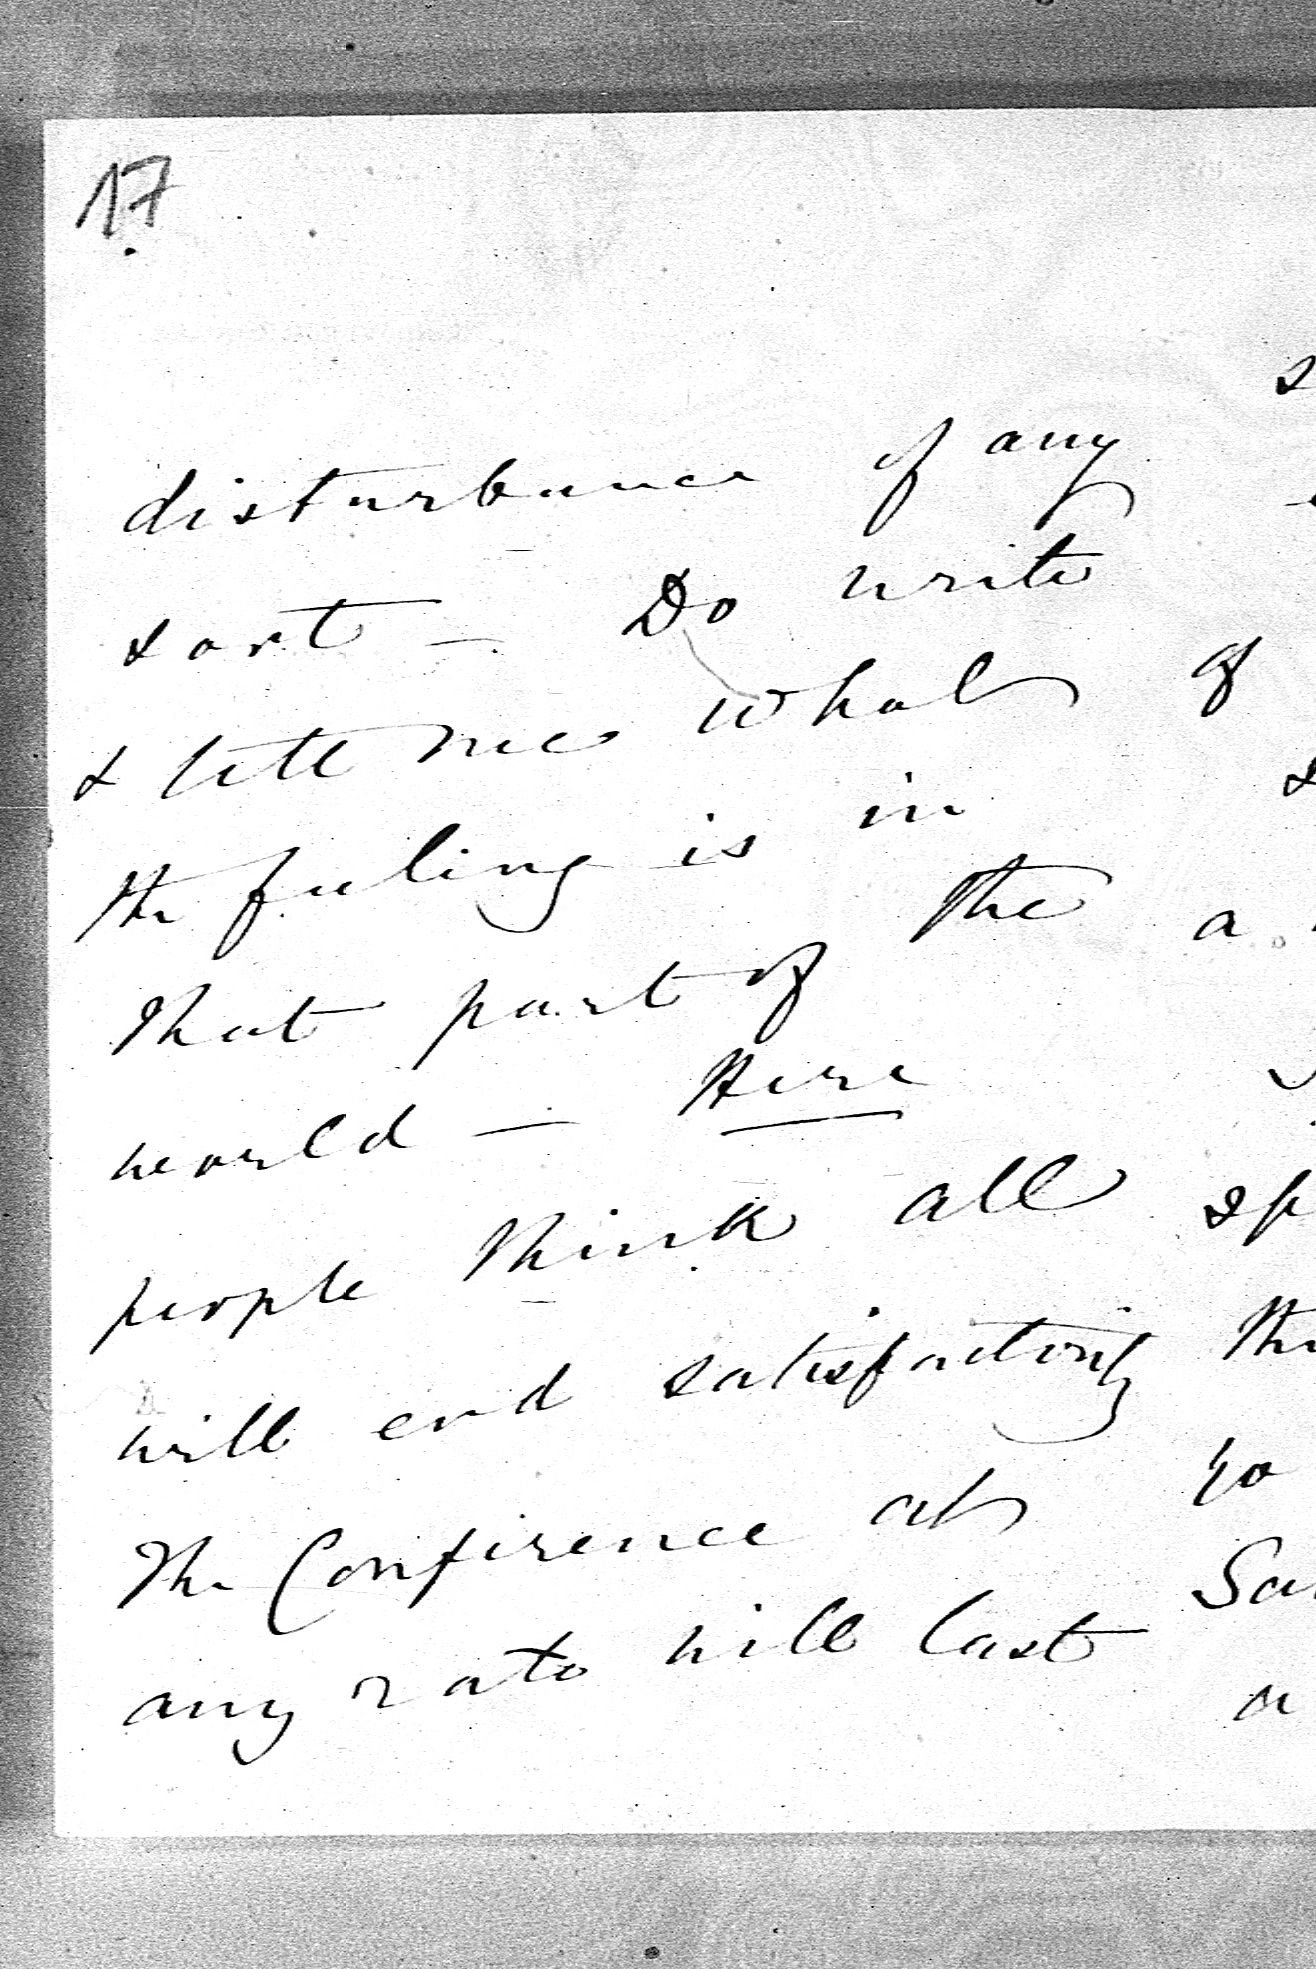 17
disturbance of any
sort — Do write
& tell me what
the feeling is in
that part of the
world — Here
people think all
will end satisfactorily
The Conference at
any rate will last